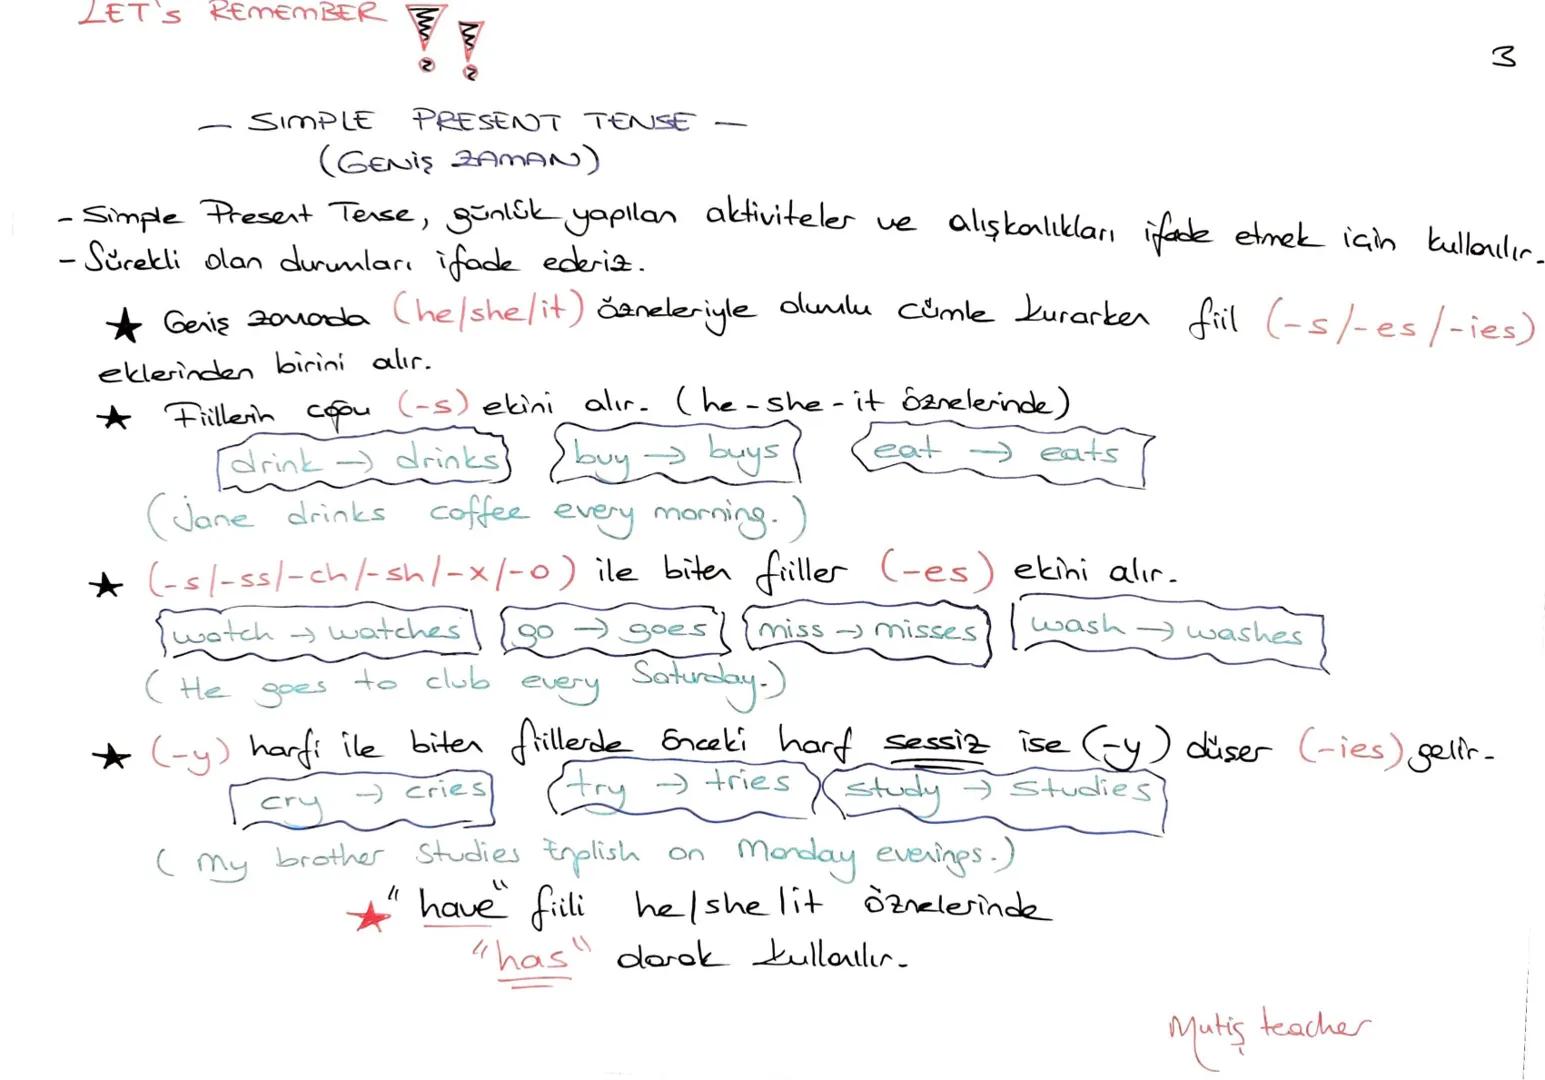 LET's REMEMBER !!
3
- SIMPLE PRESENT TENSE -
(GENİŞ ZAMAN)
- Simple Present Tense, günlük yapılan aktiviteler ve alışkanlıkları ifade etmek için kullanılır.
- Sürekli olan durumları ifade ederiz.
★ Geniş zamanda (he/she/it) özneleriyle olumlu cümle kurarken fiil (-s/-es/-ies)
eklerinden birini alır.
★ Fiillerin çoğu (-s) ekini alır. (he-she-it öznelerinde)
drink → drinks buy → buys eat → eats
(Jane drinks coffee every morning.)
★ (-s/-ss/-ch/-sh/-x/-o) ile biten fiiller (-es) ekini alır.
watch → watches go → goes miss → misses wash → washes
(He goes to club every Saturday.)
★ (-y) harfi ile biten fiillerde önceki harf sessiz ise (-y) düşer (-ies) gelir.
cry → cries try → tries study → studies
(My brother studies English on Monday evenings.)
★ "have" fiili he/she/it öznelerinde
"has" olarak kullanılır.
Mutiş teacher